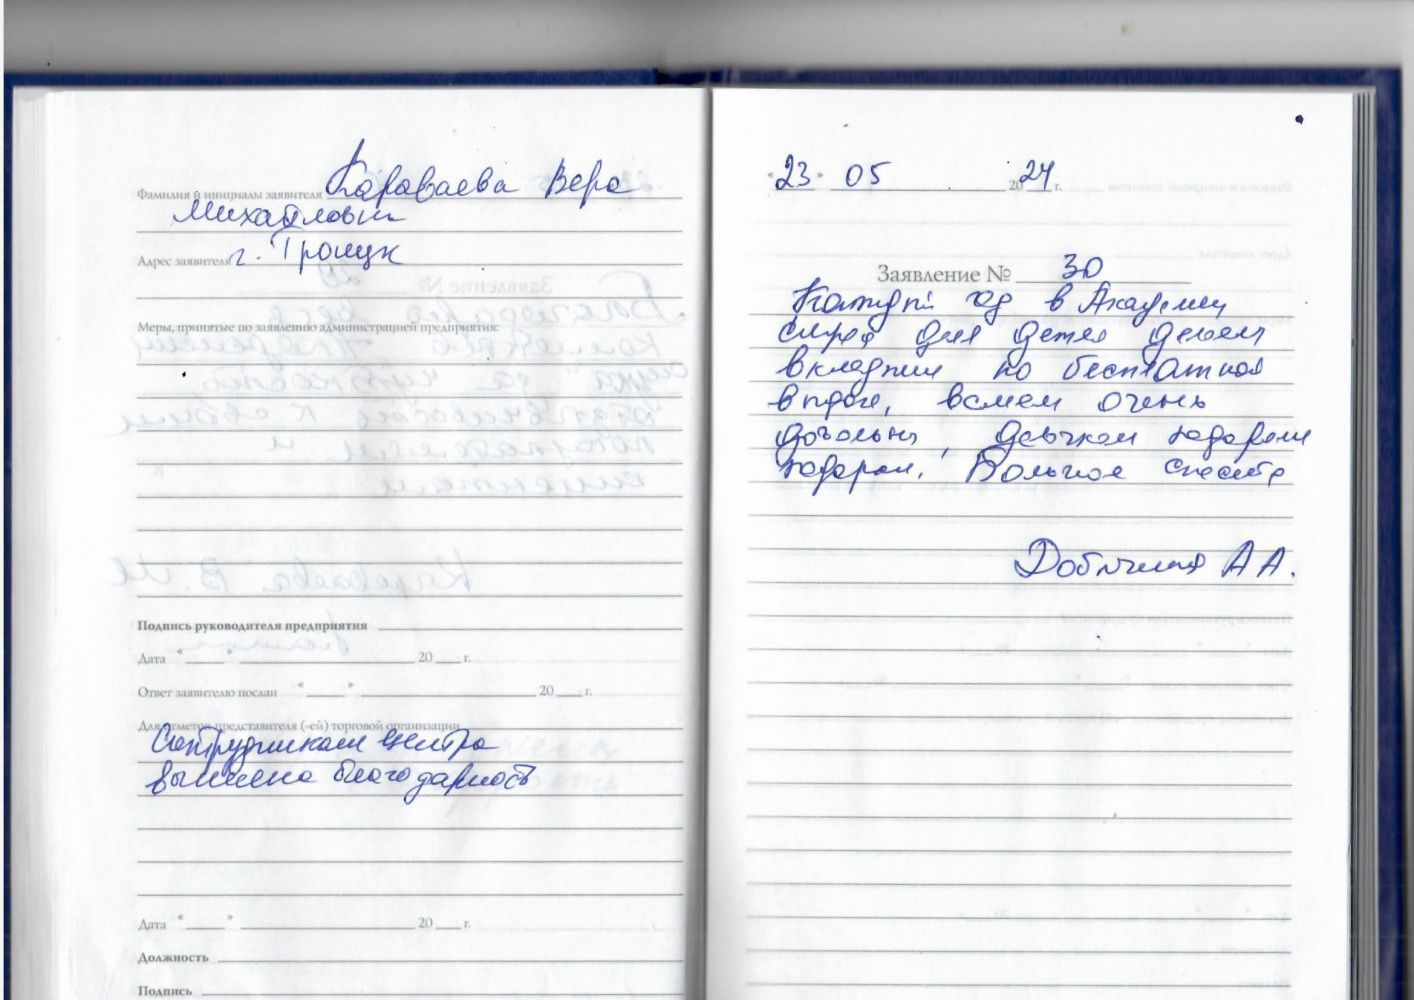 Фамилия и инициалы заявителя Караваева Вера
Михайловн
Адрес заявителя г. Троицк
Меры, принятые по заявлению администрацией предприятия:
Подпись руководителя предприятия
Дата "___" ___ 20 ___ г.
Ответ заявителю послан "___" ___ 20 ___ г.
Для отметок представителя (-ей) торговой организации
Сотрудникам центра
вынесена благодарность
Дата "___" ___ 20 ___ г.
Должность
Подпись
"23" 05 2024 г.
Заявление № 30
Каждый год в Академии
слуха для детей делаем
вкладыши по бесплатной
, всем очень
довольны, девочкам подарили
подарки. Большое спасибо
А А.